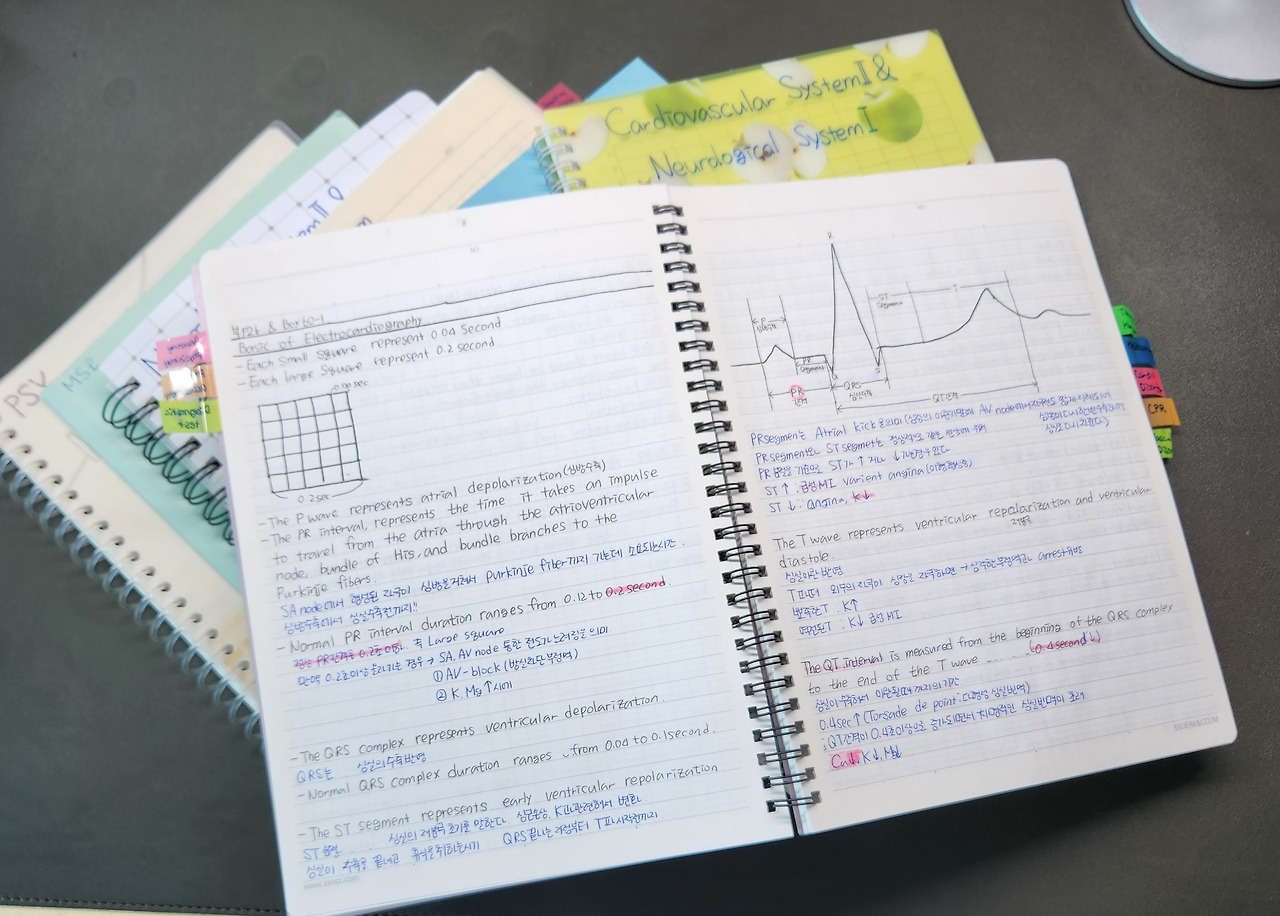 Cardiovascular System II &
Neurological System I
PSY
MSE
CPR
& Box 60-1
Basic of Electrocardiography
- Each small square represent 0.04 second
- Each large square represent 0.2 second
0.04 sec
0.2 sec
- The P wave represents atrial depolarization (심방수축)
- The PR interval, represents the time it takes an impulse
to travel from the atria through the atrioventricular
node, bundle of His, and bundle branches to the
Purkinje fibers.
SA node에서 형성된 자극이 심방을 거쳐서 Purkinje fiber까지 가는데 소요되는시간.
심방수축에서 심실수축전까지!!
- Normal PR interval duration ranges from 0.12 to 0.2 second
즉 Large square
만약 0.2초이상 늘어지는 경우 → SA, AV node 통한 전도가 느려짐을 의미
① AV-block (방실차단 부정맥)
② K, Mg ↑ 시에
- The QRS complex represents ventricular depolarization.
QRS는 심실의 수축 반영
- Normal QRS complex duration ranges from 0.04 to 0.1 second.
- The ST segment represents early ventricular repolarization
ST 분절 심실의 재분극 초기를 말한다. K과 관련해서 변화
심실이 수축을 끝내고 휴식을 취하는시기 QRS 끝나는 지점부터 T파 시작점까지
R
P
ST
Segment
T
PR
Segment
S
PR
간격
QRS
심실수축
QT간격
PR segment는 Atrial kick을 의미
PR segment와 ST segment는 정상적으로 같은 선상에 위치
PR 분절을 기준으로 ST가 ↑ 거나 ↓ 가는경우 있다
ST ↑ : 급성 MI, varient angina (이형협심증)
ST ↓ : angina, K↓
The T wave represents ventricular repolarization and ventricular
재분극
diastole.
심실이완 반영
T파때 외부의 자극이 심장을 자극하면 → 심각한 부정맥과 arrest 유발
뾰족한 T . K↑
역전된 T . K↓ 급성 MI
The QT interval is measured from the beginning of the QRS complex
to the end of the T wave (0.4 second↓)
심실이 수축하여 이완될때 까지의 기간
0.4sec ↑ (Torsade de point: 다형성 심실빈맥)
; QT간격이 0.4초 이상으로 증가되면서 치명적인 심실빈맥이 초래
Ca↓, K↓, Mg↓